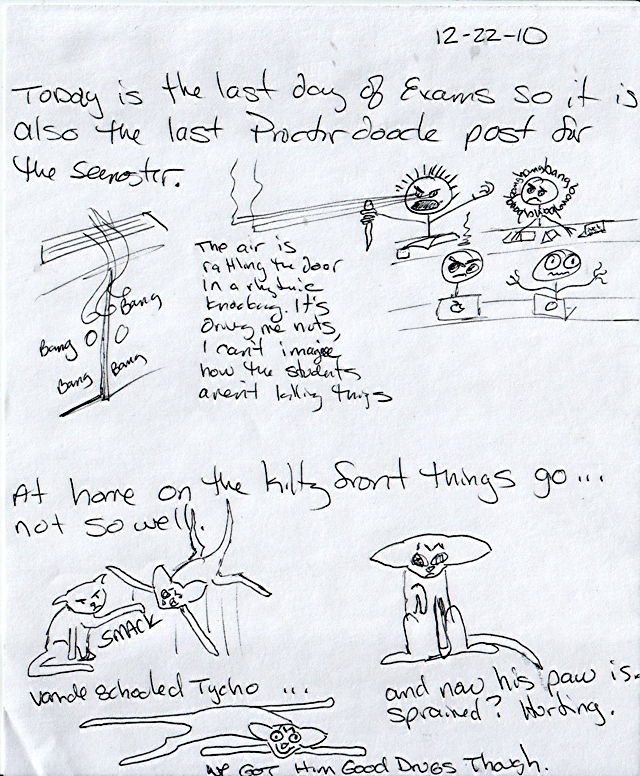 12-22-10
Today is the last day of Exams so it is
also the last Proctordoodle post for
the semester.
bangbangbangbang
Bang
Bang
Bang
Bang
The air is
rattling the door
in a rhythmic
knocking. It's
driving me nuts,
I can't imagine
how the students
aren't killing things
At home on the kitty front things go...
not so well.
SMACK
schooled Tycho ...
and now his paw is
sprained? Hurting.
We Got Him Good Drugs Though.